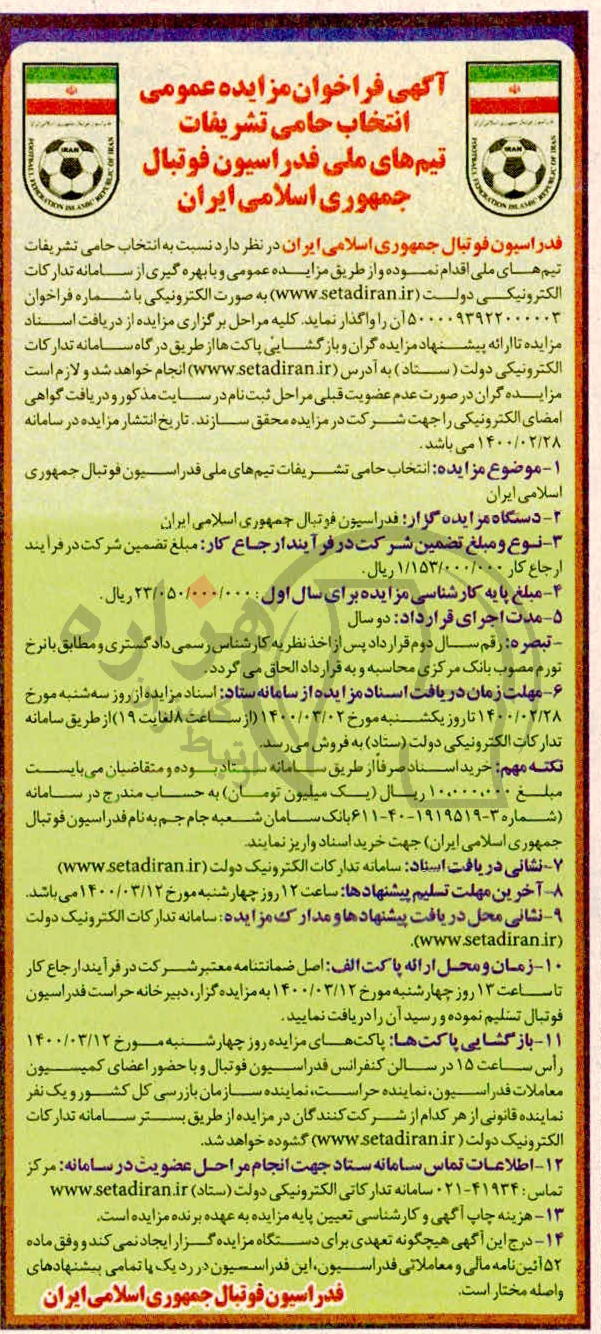 آگهی فراخوان مزایده عمومی
انتخاب حامی تشریفات
تیم‌های ملی فدراسیون فوتبال
جمهوری اسلامی ایران
IRAN
FOOTBALL FEDERATION ISLAMIC REPUBLIC OF IRAN
IRAN
FOOTBALL FEDERATION ISLAMIC REPUBLIC OF IRAN
فدراسیون فوتبال جمهوری اسلامی ایران در نظر دارد نسبت به انتخاب حامی تشریفات
تیم‌های ملی اقدام نموده و از طریق مزایده عمومی و با بهره گیری از سامانه تدارکات
الکترونیکی دولت (www.setadiran.ir) به صورت الکترونیکی با شماره فراخوان
۵۰۰۰۰۹۳۹۲۲۰۰۰۰۰۳ آن را واگذار نماید. کلیه مراحل برگزاری مزایده از دریافت اسناد
مزایده تا ارائه پیشنهاد مزایده گران و بازگشایی پاکت ها از طریق درگاه سامانه تدارکات
الکترونیکی دولت ( ستاد ) به آدرس (www.setadiran.ir) انجام خواهد شد و لازم است
مزایده گران در صورت عدم عضویت قبلی مراحل ثبت نام در سایت مذکور و دریافت گواهی
امضای الکترونیکی را جهت شرکت در مزایده محقق سازند. تاریخ انتشار مزایده در سامانه
۱۴۰۰/۰۲/۲۸ می باشد.
۱-موضوع مزایده: انتخاب حامی تشریفات تیم‌های ملی فدراسیون فوتبال جمهوری
اسلامی ایران
۲-دستگاه مزایده گزار: فدراسیون فوتبال جمهوری اسلامی ایران
۳-نوع و مبلغ تضمین شرکت در فرآیند ارجاع کار: مبلغ تضمین شرکت در فرآیند
ارجاع کار ۱/۱۵۳/۰۰۰/۰۰۰ ریال.
۴-مبلغ پایه کارشناسی مزایده برای سال اول: ۲۳/۰۵۰/۰۰۰/۰۰۰ ریال.
۵-مدت اجرای قرارداد: دو سال
-تبصره: رقم سال دوم قرارداد پس از اخذ نظریه کارشناس رسمی دادگستری و مطابق با نرخ
تورم مصوب بانک مرکزی محاسبه و به قرارداد الحاق می گردد.
۶-مهلت زمان دریافت اسناد مزایده از سامانه ستاد: اسناد مزایده از روز سه‌شنبه مورخ
۱۴۰۰/۰۲/۲۸ تا روز یکشنبه مورخ ۱۴۰۰/۰۳/۰۲ (از ساعت ۸ لغایت ۱۹) از طریق سامانه
تدارکات الکترونیکی دولت (ستاد) به فروش می رسد.
نکته مهم: خرید اسناد صرفا از طریق سامانه ستاد بوده و متقاضیان می بایست
مبلغ ۱۰.۰۰۰.۰۰۰ ریال (یک میلیون تومان) به حساب مندرج در سامانه
(شماره ۳-۱۹۱۹۵۱۹-۴۰-۶۱۱ بانک سامان شعبه جام جم به نام فدراسیون فوتبال
جمهوری اسلامی ایران) جهت خرید اسناد واریز نمایند.
۷-نشانی دریافت اسناد: سامانه تدارکات الکترونیک دولت (www.setadiran.ir)
۸-آخرین مهلت تسلیم پیشنهادها: ساعت ۱۲ روز چهارشنبه مورخ ۱۴۰۰/۰۳/۱۲ می باشد.
۹-نشانی محل دریافت پیشنهادها و مدارک مزایده: سامانه تدارکات الکترونیک دولت
(www.setadiran.ir).
۱۰-زمان و محل ارائه پاکت الف: اصل ضمانتنامه معتبر شرکت در فرآیند ارجاع کار
تا ساعت ۱۳ روز چهارشنبه مورخ ۱۴۰۰/۰۳/۱۲ به مزایده گزار، دبیرخانه حراست فدراسیون
فوتبال تسلیم نموده و رسید آن را دریافت نمایید.
۱۱-بازگشایی پاکت‌ها: پاکت‌های مزایده روز چهارشنبه مورخ ۱۴۰۰/۰۳/۱۲
رأس ساعت ۱۵ در سالن کنفرانس فدراسیون فوتبال و با حضور اعضای کمیسیون
معاملات فدراسیون، نماینده حراست، نماینده سازمان بازرسی کل کشور و یک نفر
نماینده قانونی از هر کدام از شرکت کنندگان در مزایده از طریق بستر سامانه تدارکات
الکترونیک دولت (www.setadiran.ir) گشوده خواهد شد.
۱۲-اطلاعات تماس سامانه ستاد جهت انجام مراحل عضویت در سامانه: مرکز
تماس: ۴۱۹۳۴-۰۲۱ سامانه تدارکاتی الکترونیکی دولت (ستاد) www.setadiran.ir
۱۳-هزینه چاپ آگهی و کارشناسی تعیین پایه مزایده به عهده برنده مزایده است.
۱۴-درج این آگهی هیچگونه تعهدی برای دستگاه مزایده گزار ایجاد نمی کند و وفق ماده
۵۲ آئین نامه مالی و معاملاتی فدراسیون، این فدراسیون در رد یک یا تمامی پیشنهادهای
واصله مختار است.
فدراسیون فوتبال جمهوری اسلامی ایران
هزاره